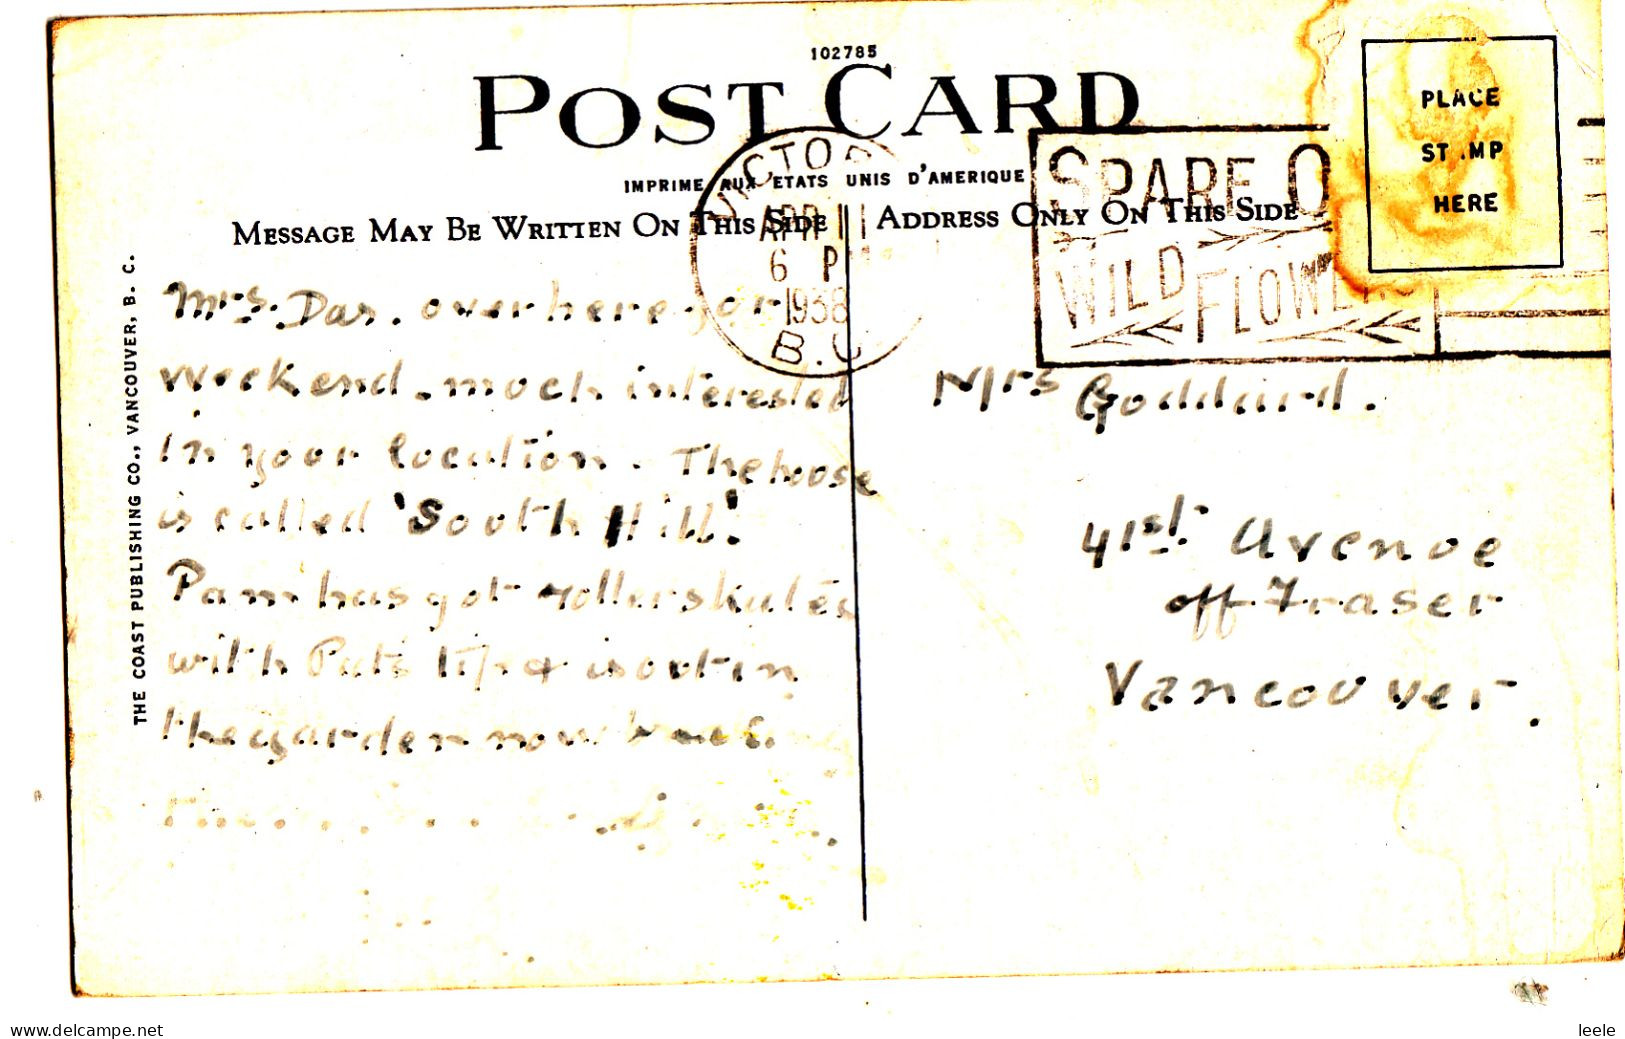 102785
POST CARD
IMPRIME AUX ETATS UNIS D'AMERIQUE
MESSAGE MAY BE WRITTEN ON THIS SIDE
ADDRESS ONLY ON THIS SIDE
PLACE
ST MP
HERE
VICTO
APR 11
6 P
1938
B.C
SPARE O
WILD FLOWE
THE COAST PUBLISHING CO., VANCOUVER, B. C.
Mrs. Das. over here for
weekend. much interested
in your location. The house
is called 'South Hill'.
Pam has got rollerskates
with Pat's & is out in
the garden now
Mrs Goddard.
41st Avenue
off Fraser
Vancouver.
www.delcampe.net
leele